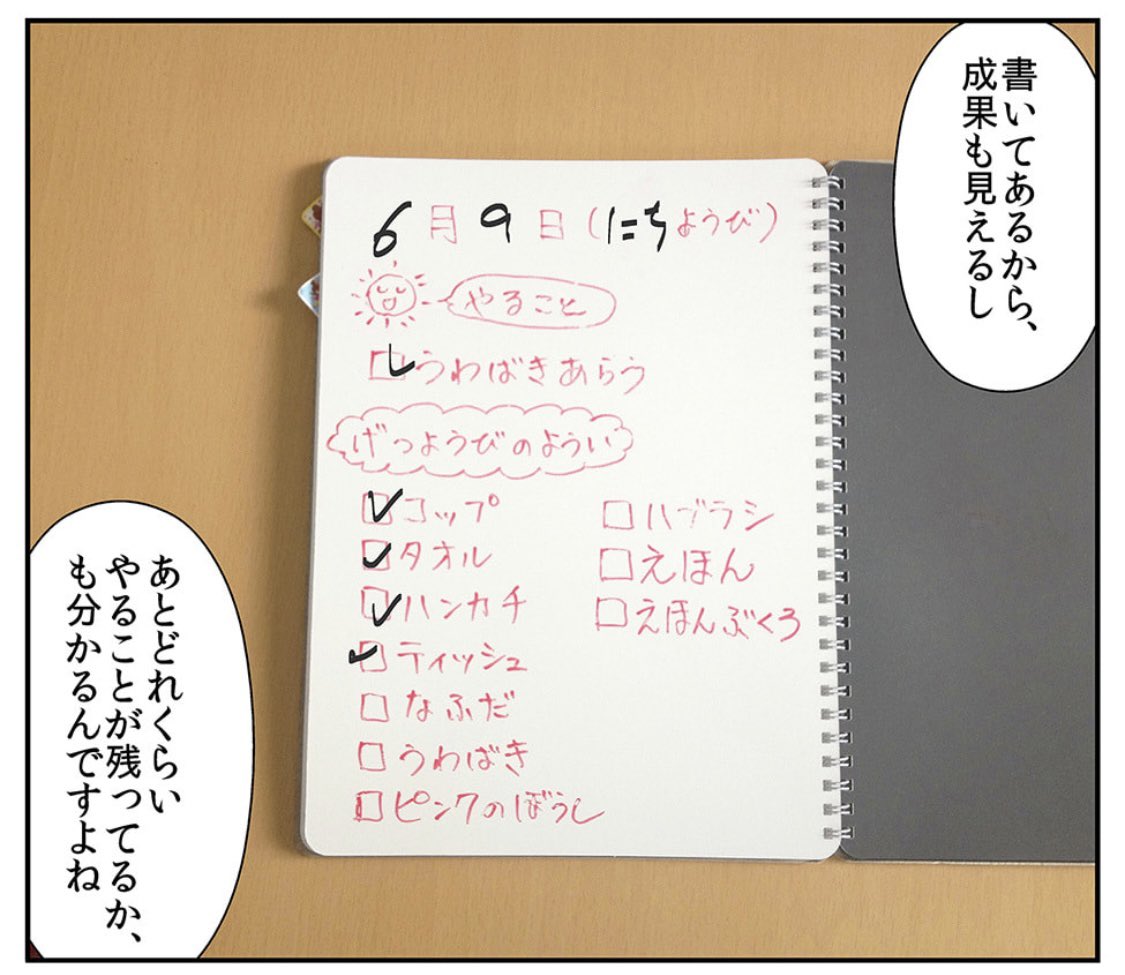 書いてあるから、
成果も見えるし
6月9日(にちようび)
やること
うわばきあらう
げつようびのようい
コップ
タオル
ハンカチ
ティッシュ
なふだ
うわばき
ピンクのぼうし
ハブラシ
えほん
えほんぶくろ
あとどれくらい
やることが残ってるか、
も分かるんですよね